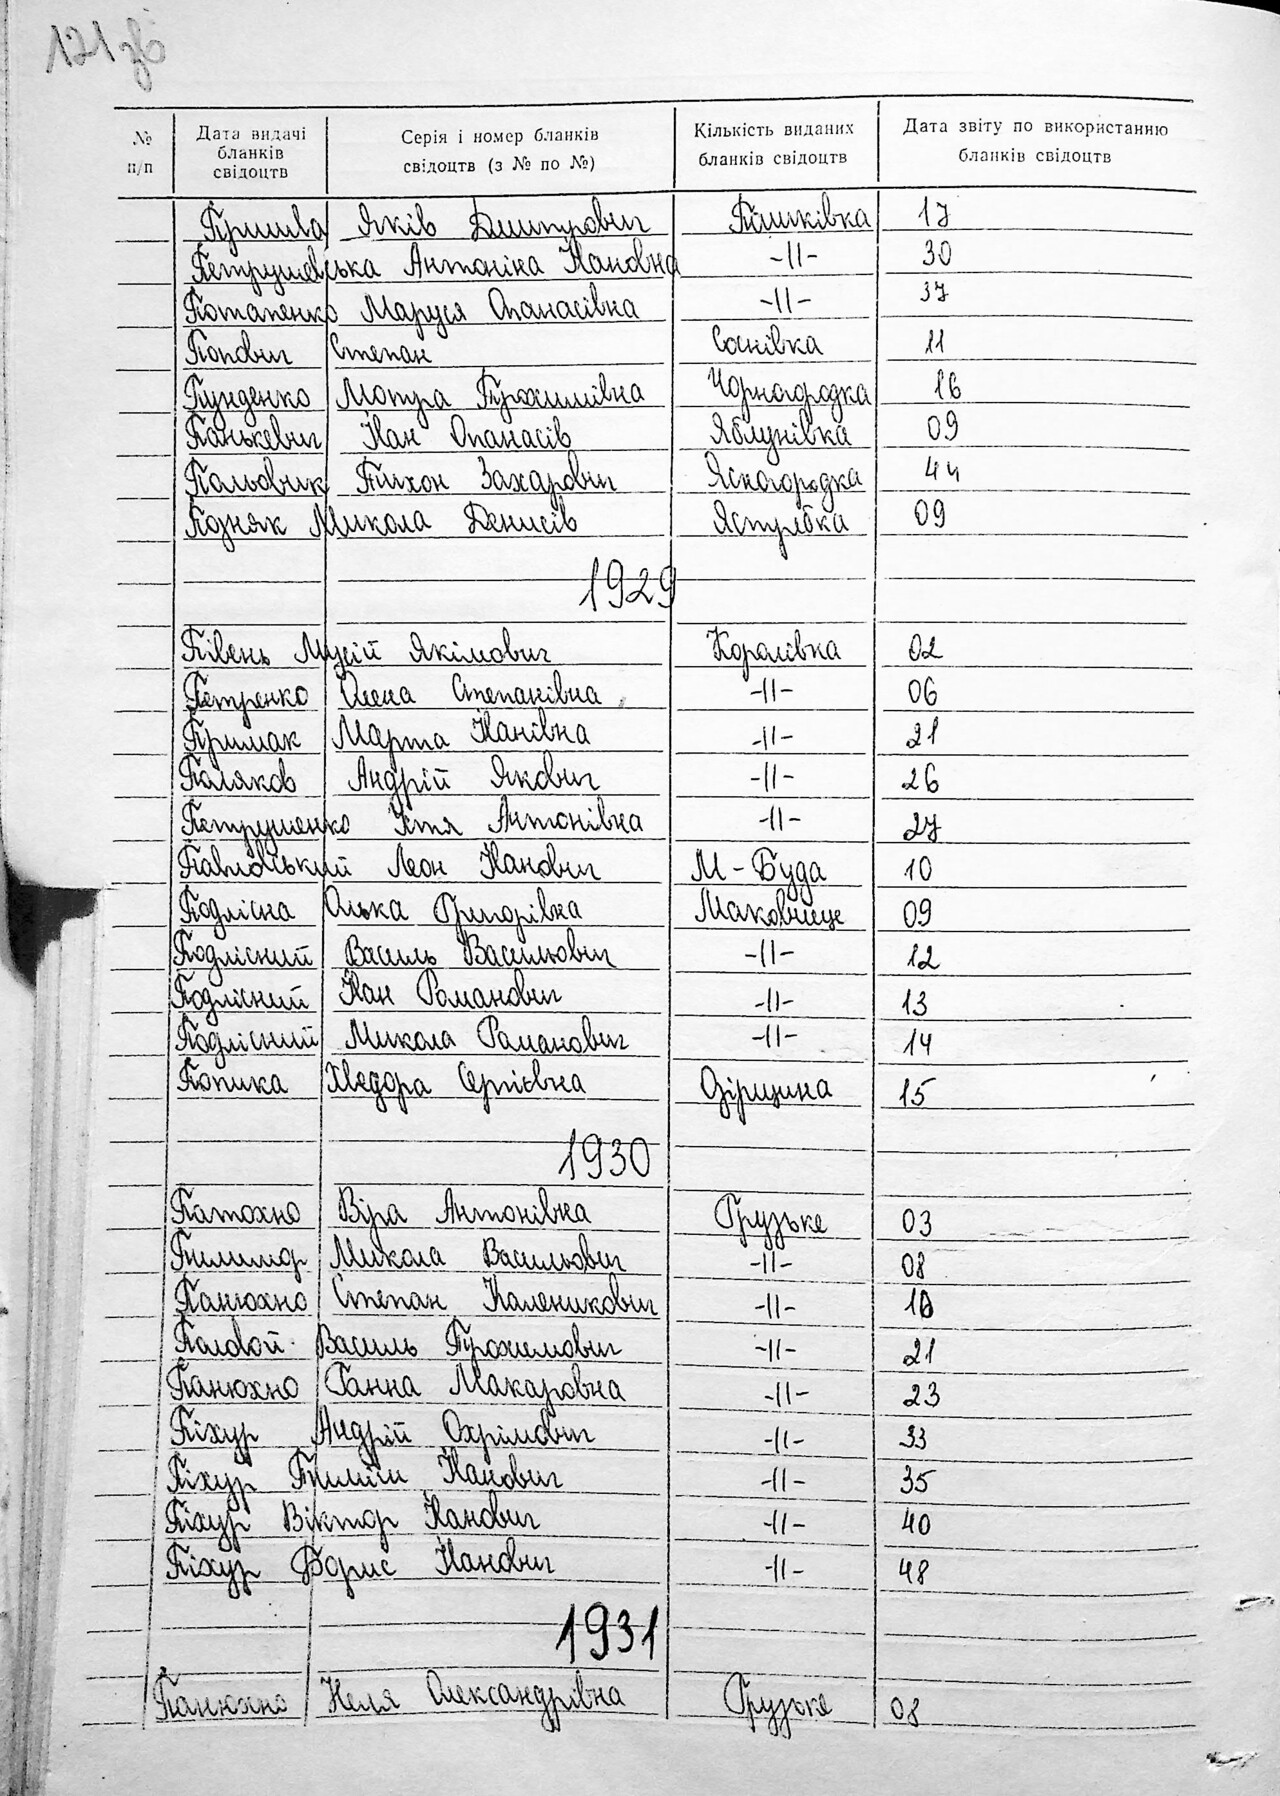 121 зв
№ п/п | Дата видачі бланків свідоцтв | Серія і номер бланків свідоцтв (з № по №) | Кількість виданих бланків свідоцтв | Дата звіту по використанню бланків свідоцтв
Яків Дмитрович Пашківка 17
Петрушевська Антоніна Івановна -||- 30
Потапенко Маруся Опанасівна -||- 37
Попович Степан Соснівка 11
Пунденко Мотра Прохимівна Чорногородка 16
Панькевич Іван Опанасів Яблунівка 09
Пальовик Тихон Захарович Ясногородка 44
Позняк Микола Денисів 09
1929
Півень Мусій Якімович Королівка 02
Петренко Олена Степанівна -||- 06
Примак Марта Іванівна -||- 21
Поляков Андрій Якович -||- 26
Петрушенко Устя Антонівна -||- 27
Павловський Леон Іванович М-Буда 10
Подлісна Олька Григорівна Маковище 09
Подлісний Василь Васильович -||- 12
Подлісний Іван Романович -||- 13
Подлісний Микола Романович -||- 14
Попика Хведора Сергієвна 15
1930
Віра Антонівна Грузьке 03
Пилипор Микола Васильович -||- 08
Панюхно Степан Каленикович -||- 10
Паловой Василь Прохимович -||- 21
Панюхно Ганна Макаровна -||- 23
Піхур Андрій Охрімович -||- 33
Піхур Пилип Іванович -||- 35
Піхур Віктор Іванович -||- 40
Піхур Борис Іванович -||- 48
1931
Панюхно Неля Олександрівна Грузьке 08